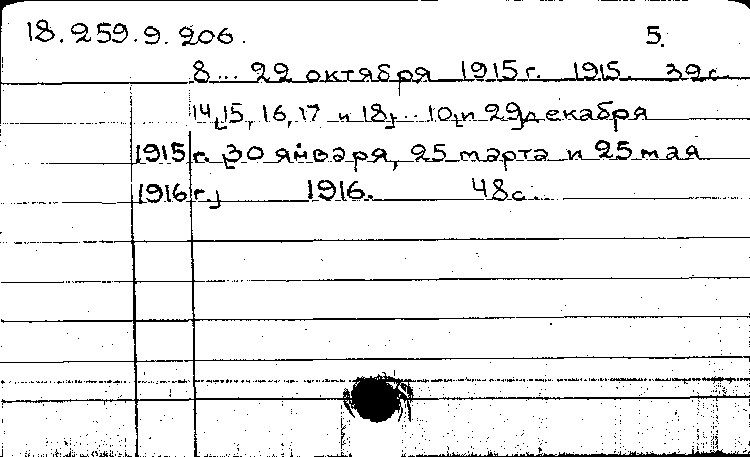 18.259.9.206. 5.
8... 22 октября 1915 г. 1915. 39 с.
14, [15, 16, 17 и 18]... 10, [и 29] декабря
1915 г. [30 января, 25 марта и 25 мая
1916 г.] 1916. 48 с.